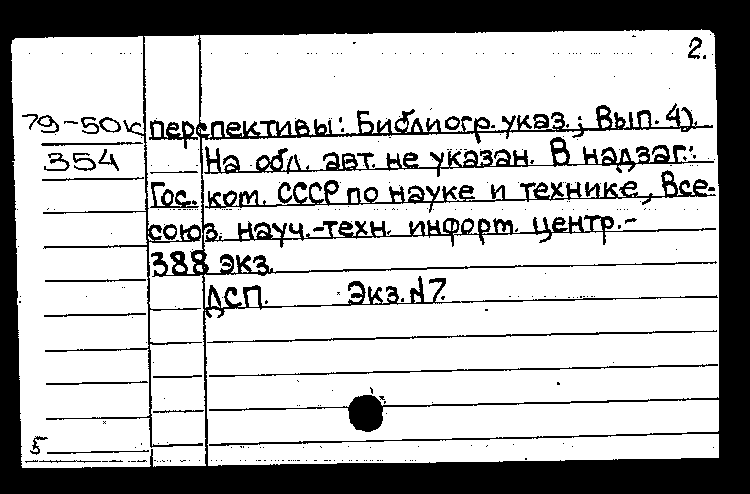 2.
79-50к перспективы: Библиогр. указ.; Вып. 4).
354 На обл. авт. не указан. В надзаг.:
Гос. ком. СССР по науке и технике, Все-
союз. науч.-техн. информ. центр.-
388 экз.
ДСП. Экз. №7.
5